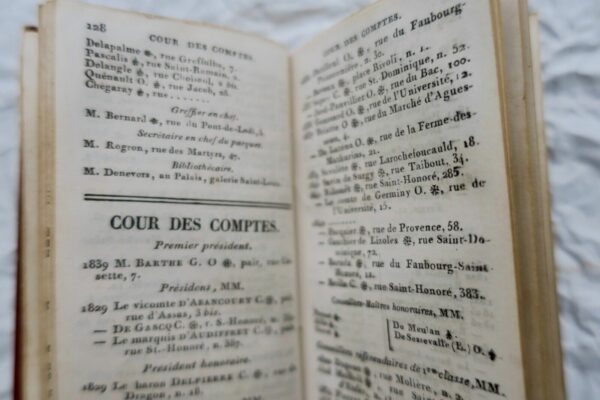 128
COUR DES COMPTES.
Delapalme ❉, rue Greffulhe, 7.
Pascalis ❉, rue Saint-Romain, 2.
Delangle ❉, rue
Quénault O. ❉, rue Jacob, 28.
Chegaray ❉, rue
Greffier en chef.
M. Bernard ❉, rue du Pont-de-Lodi, 5
Secrétaire en chef du parquet.
M. Rogron, rue des Martyrs, 47.
Bibliothécaire.
M. Denevers, au Palais, galerie Saint-Louis.
COUR DES COMPTES.
Premier président.
1839 M. BARTHE G. O ❉, pair, rue
sette, 7.
Présidens, MM.
1829 Le vicomte D'ABANCOURT C. ❉,
rue d'Assas, 3 bis.
— DE GASCQ C. ❉, r. S.-Honoré, n.
— Le marquis D'AUDIFFRET C. ❉,
rue St.-Honoré, n. 387.
Président honoraire.
1829 Le baron DELPIERRE C. ❉,
Dragon, n.
COUR DES COMPTES.
O. ❉, rue du Faubourg-
Poissonnière,
❉, place Rivoli, n. 1.
C. ❉, St. Dominique, n. 52.
O. ❉, rue du Bac, 100.
O. ❉, rue de l'Université, 12.
O. ❉, rue du Marché d'Agues-
seau,
O. ❉, rue de la Ferme-des-
Mathurins, 21.
❉, rue Larochefoucauld, 18.
de Surgy ❉, rue Taitbout, 34.
❉, rue Saint-Honoré, 285.
Le comte de Germiny O. ❉, rue de
l'Université, 15.
❉, rue de Provence, 58.
— Gauthier de Lizoles ❉, rue Saint-Do-
minique, 72.
❉, rue du Faubourg-Saint-
Honoré, 11.
❉, rue Saint-Honoré, 383.
Conseillers-Maîtres honoraires, MM.
De Meulan ❉.
De Sessevalle (E.) O. ❉.
Conseillers référendaires de 1re classe, MM.
❉, rue Molière, n. 2.